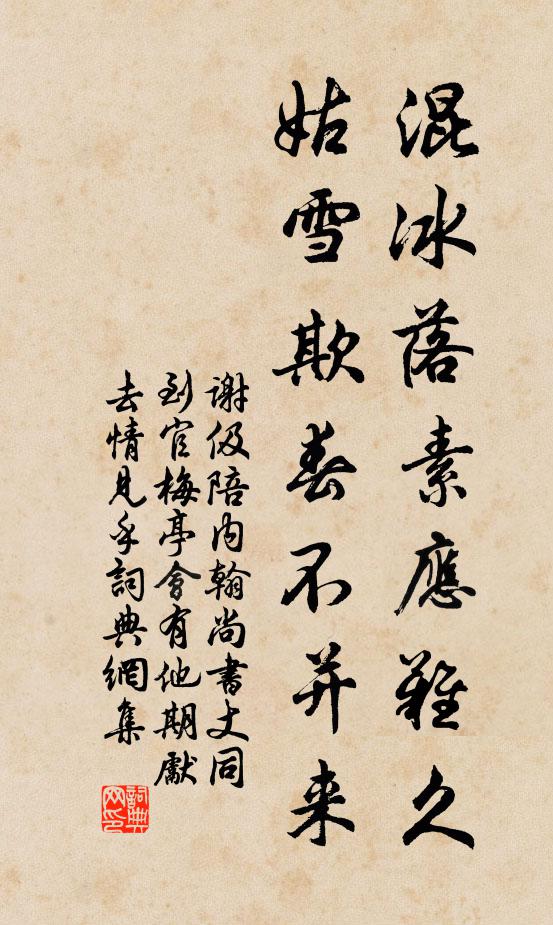 混冰落素應難久
姑雪欺春不并来
謝伋陪内翰尚書丈同
到官梅亭會有他期獻
去情見乎詞典網集
詞典網印